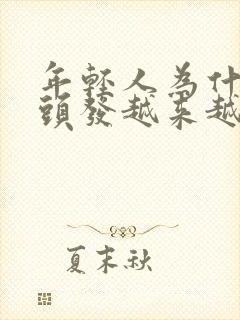 年輕人為什
頭發越来越
夏末秋